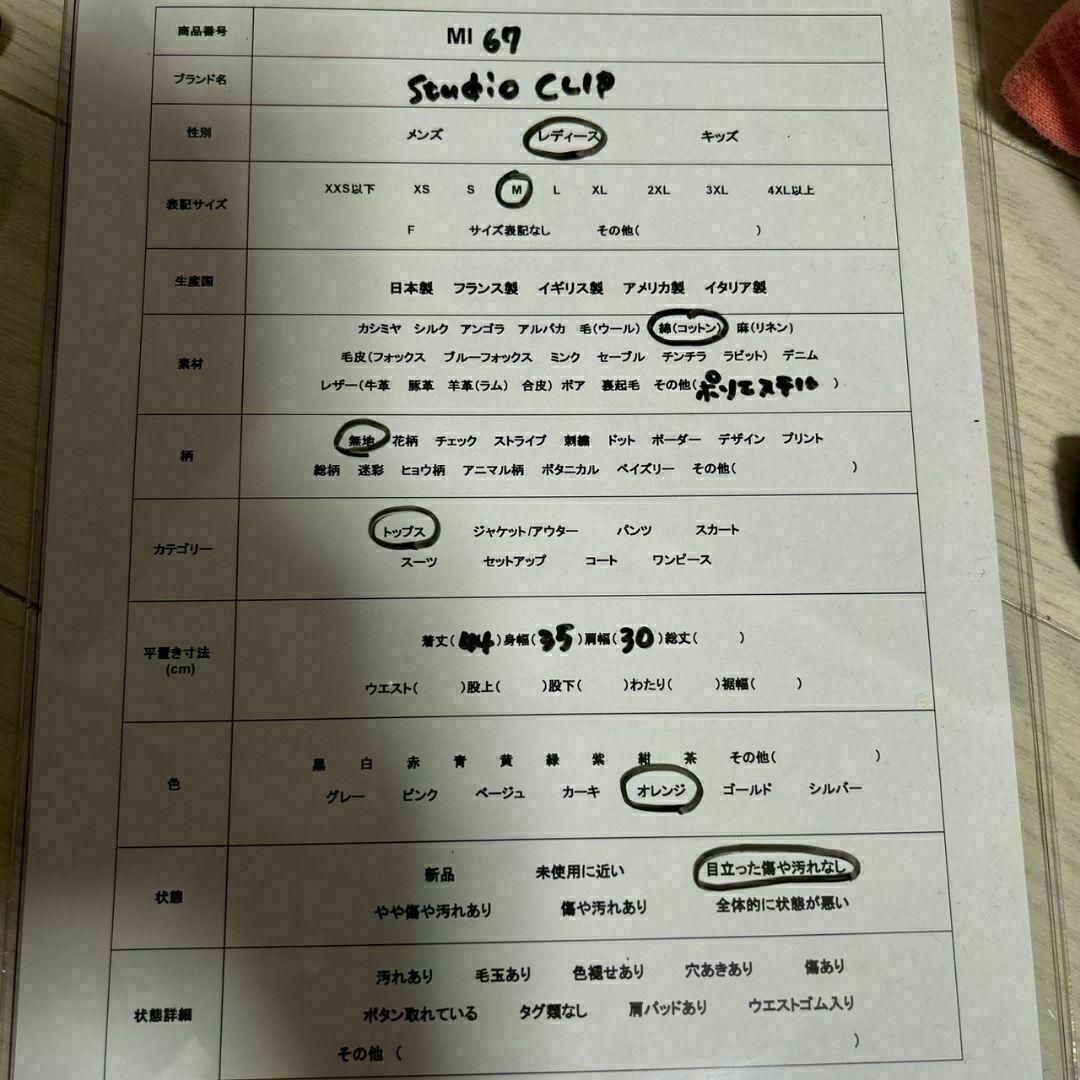 商品番号 MI 67
ブランド名 Studio CLIP
性別 メンズ レディース キッズ
XXS以下 XS S M L XL 2XL 3XL 4XL以上
表記サイズ
F サイズ表記なし その他( )
生産国 日本製 フランス製 イギリス製 アメリカ製 イタリア製
カシミヤ シルク アンゴラ アルパカ 毛(ウール) 綿(コットン) 麻(リネン)
素材 毛皮(フォックス ブルーフォックス ミンク セーブル チンチラ ラビット) デニム
レザー(牛革 豚革 羊革(ラム) 合皮) ボア 裏起毛 その他(ポリエステル )
無地 花柄 チェック ストライプ 刺繍 ドット ボーダー デザイン プリント
柄
総柄 迷彩 ヒョウ柄 アニマル柄 ボタニカル ペイズリー その他( )
トップス ジャケット/アウター パンツ スカート
カテゴリー
スーツ セットアップ コート ワンピース
着丈(44)身幅(35)肩幅(30)総丈( )
平置き寸法
(cm)
ウエスト( )股上( )股下( )わたり( )裾幅( )
黒 白 赤 青 黄 緑 紫 紺 茶 その他( )
色
グレー ピンク ベージュ カーキ オレンジ ゴールド シルバー
新品 未使用に近い 目立った傷や汚れなし
状態
やや傷や汚れあり 傷や汚れあり 全体的に状態が悪い
汚れあり 毛玉あり 色褪せあり 穴あきあり 傷あり
状態詳細 ボタン取れている タグ類なし 肩パッドあり ウエストゴム入り
その他 ( )